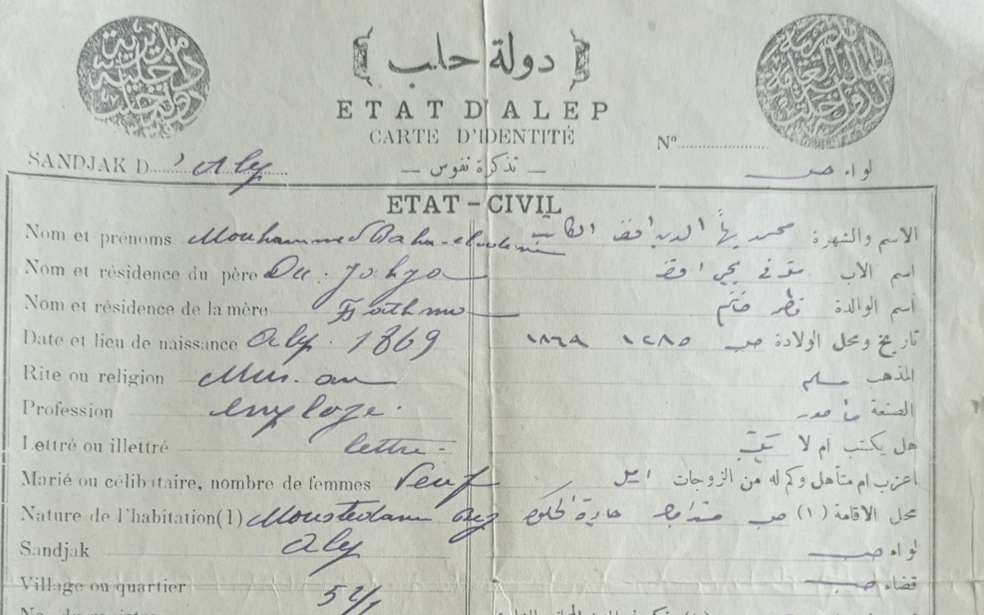 مديرية داخلية دولة حلب
دولة حلب
ETAT D'ALEP
CARTE D'IDENTITÉ
Nº
SANDJAK D' Alep
تذكرة نفوس
لواء حلب
ETAT-CIVIL
Nom et prénoms Mouhammed Baha-
الاسم والشهرة محمد بهاء الدين افندي
Nom et résidence du père
اسم الاب متوفى يحيى افندي
Nom et résidence de la mère
اسم الوالدة خانم
Date et lieu de naissance Alep. 1869
تاريخ ومحل الولادة حلب ١٢٨٥ ١٨٦٩
Rite ou religion Mus. an
المذهب مسلم
Profession employe.
الصنعة مأمور
Lettré ou illettré lettré
هل يكتب ام لا يكتب
Marié ou célibataire, nombre de femmes Veuf
اعزب ام متأهل وكم له من الزوجات ارمل
Nature de l'habitation(1) Moustedam Bey
محل الاقامة (١) حلب حارة
Sandjak Alep
لواء حلب
Village ou quartier
قضاء حلب
52/1